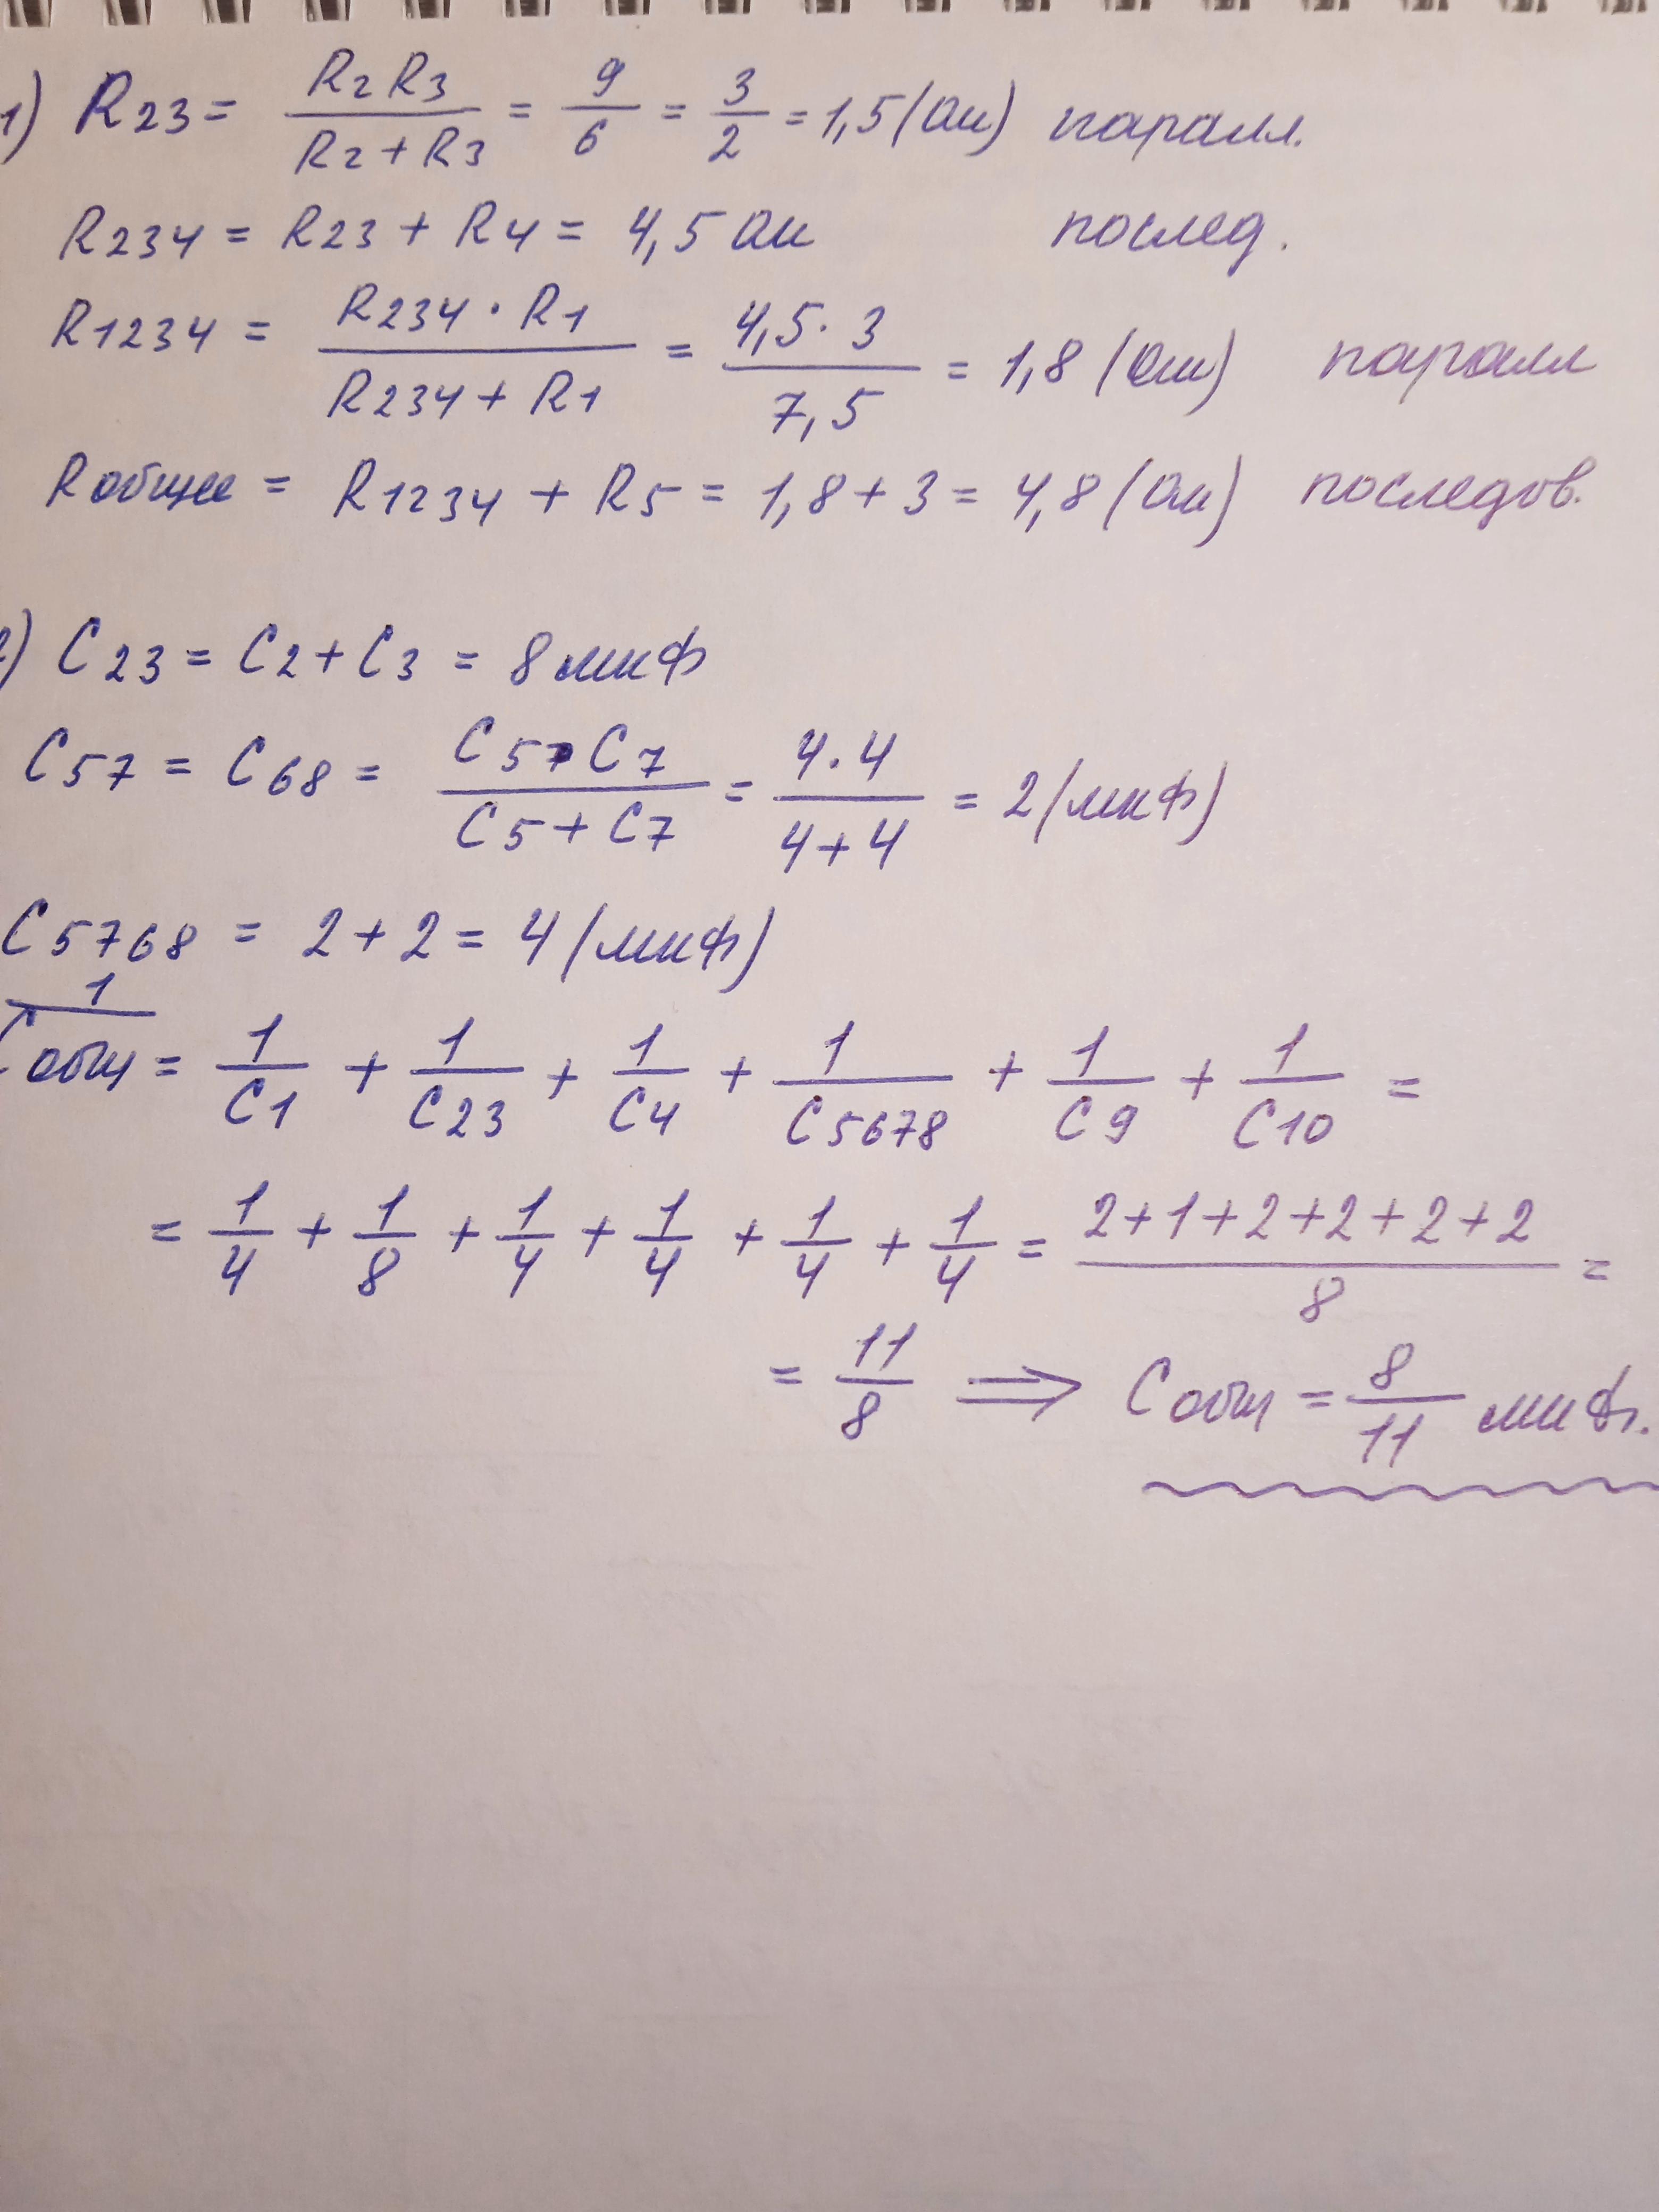 1) R23 = R2 R3 / R2 + R3 = 9/6 = 3/2 = 1,5 (Ом) паралл.
R234 = R23 + R4 = 4,5 Ом послед.
R1234 = R234 · R1 / R234 + R1 = 4,5 · 3 / 7,5 = 1,8 (Ом) паралл
Rобщее = R1234 + R5 = 1,8 + 3 = 4,8 (Ом) последов.
2) C23 = C2 + C3 = 8 мкФ
C57 = C68 = C5 · C7 / C5 + C7 = 4 · 4 / 4 + 4 = 2 (мкФ)
C5768 = 2 + 2 = 4 (мкФ)
1/Cобщ = 1/C1 + 1/C23 + 1/C4 + 1/C5678 + 1/C9 + 1/C10 =
= 1/4 + 1/8 + 1/4 + 1/4 + 1/4 + 1/4 = 2 + 1 + 2 + 2 + 2 + 2 / 8 =
= 11/8 ⟹ Cобщ = 8/11 мкФ.